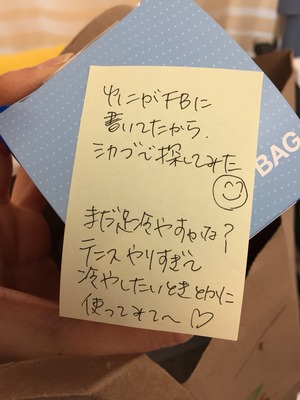 ゆにがFBに
書いてたから、
ミカブで探してみた
まだ足冷やすかな?
テニスやりすぎて
冷やしたいときとかに
使ってみて〜♡
BAG